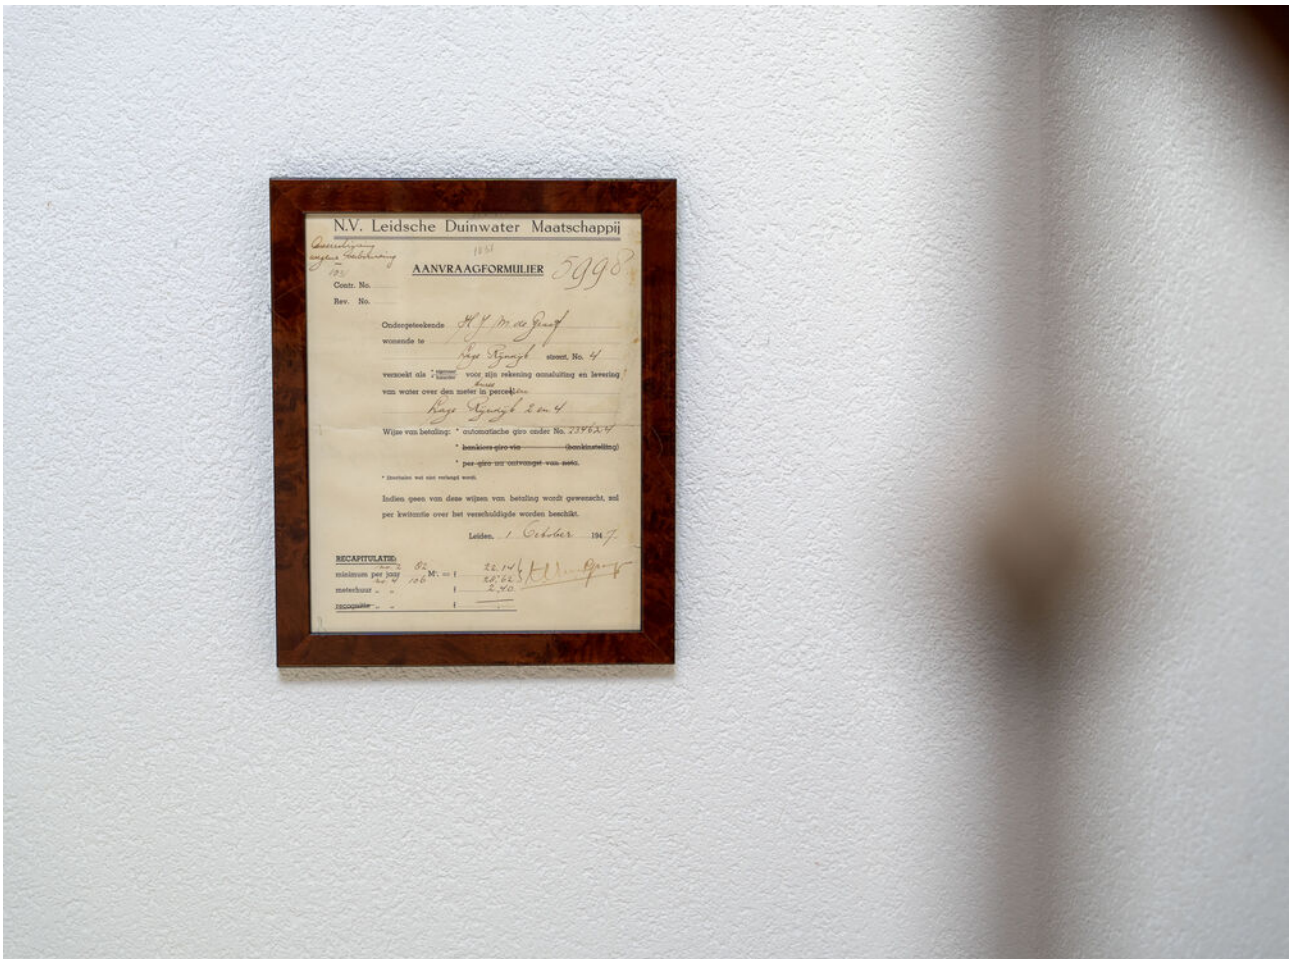 N.V. Leidsche Duinwater Maatschappij
wegens
AANVRAAGFORMULIER 5998
Contr. No.
Rev. No.
Ondergeteekende H. J. M. de Graaf
wonende te
Lage Rijndijk straat, No. 4
verzoekt als * eigenaar
* huurder voor zijn rekening aansluiting en levering
van water over den meter in perceelen
Lage Rijndijk 2 en 4
Wijze van betaling: * automatische giro onder No.
* bankiers-giro via (bankinstelling)
* per giro na ontvangst van nota.
* Doorhalen wat niet verlangd wordt.
Indien geen van deze wijzen van betaling wordt gewenscht, zal
per kwitantie over het verschuldigde worden beschikt.
Leiden, 1 October 1947.
RECAPITULATIE:
no. 2 82 22.14
minimum per jaar M³. = f
no. 4 106 28.62
meterhuur „ „ f 2.40
recognitie „ „ f